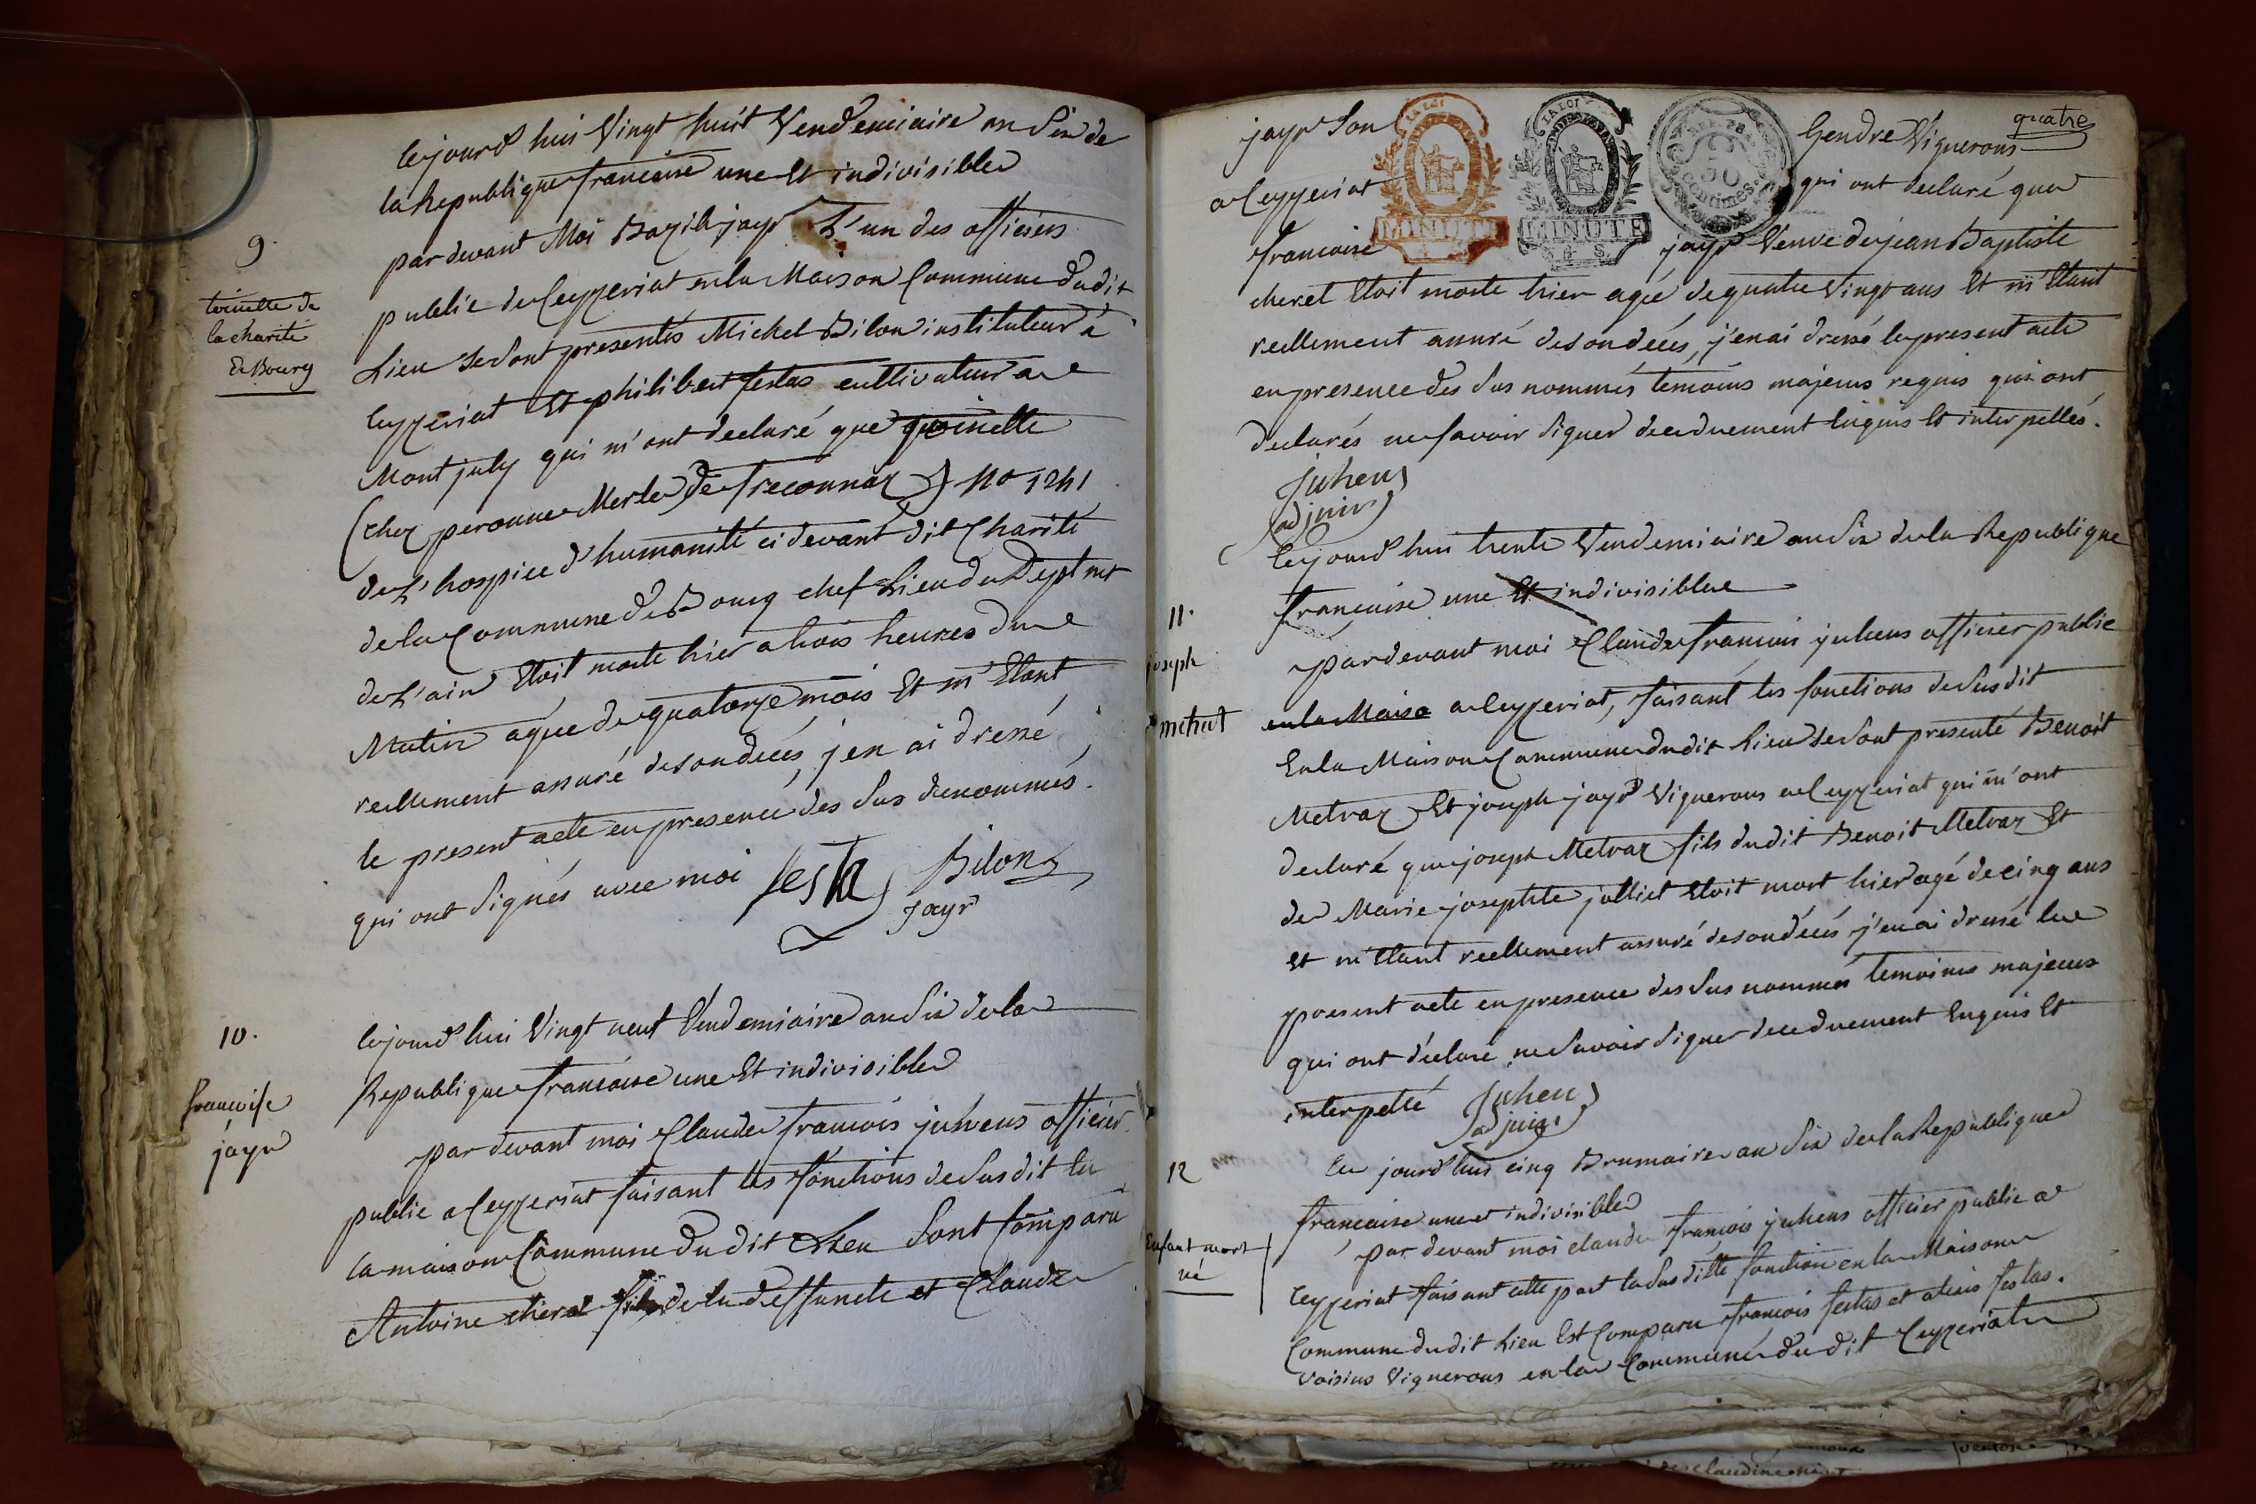 9.
toinette de
la charité
de Bourg
Cejourd'hui Vingt huit Vendemiaire an Six de
la Republique francaise une Et indivisible
par devant Moi Bazile jayr L'un des officiers
public de Ceyzeriat en la Maison Commune dudit
Lieu se sont presentés Michel Bilon instituteur à
Ceyzeriat Et philibert festas cultivateur a
Montjuly qui m'ont declaré que toinette
(chez peronne Merle de treconnaz) No 1241
de L'hospice d'humanité ci devant dit Charité
de la Commune de Bourg chef Lieu du Deptmt
de L'ain Etoit morte hier a trois heures du
Matin agée de quatorze mois Et m'Etant
reellement assuré de son decés, j'en ai dressé
le present acte en presence des sus denommés.
qui ont Signés avec moi
festas Bilon
Jayr
10.
francoise
jayr
Cejourd'hui Vingt neuf Vendemiaire an Six de la
Republique francaise une Et indivisible
par devant moi Claude francois juhens officier
public a Ceyzeriat faisant les fonctions de Susdit En
la maison Commune du dit Lieu Sont Comparu
Antoine cheret fils de la deffuncte et Claude
quatre
jayr Son Gendre Vignerons
a Ceyzeriat qui ont declaré que
francoise jayr Veuve de jean Baptiste
LA LOI
MINUTE
LA LOI
MINUTE
50
centimes.
cheret Etoit morte hier agée de quatre Vingt ans Et m'Etant
reellement assuré de son decés, j'en ai dressé le present acte
en presence des Sus nommés temoins majeurs requis qui ont
declarés ne savoir Signer de ce duement Enquis Et interpellés.
Juhens
adjoint
11.
joseph
metrat
Cejourd'hui trente Vendemiaire an Six de la Republique
francaise une Et indivisible
par devant moi Claude francois juhens officier public
en la Maiso a Ceyzeriat, faisant les fonctions de Susdit
En la Maison Commune dudit Lieu se sont presenté Benoit
Metraz Et joseph jayr Vignerons a Ceyzeriat qui m'ont
declaré que joseph Metraz fils dudit Benoit Metraz Et
de Marie josephte jolliet Etoit mort hier agé de cinq ans
Et m'Etant reellement assuré de son décés j'en ai dressé le
present acte en presence des Sus nommés temoins majeurs
qui ont déclaré ne Savoir Signer de ce duement Enquis Et
interpellé
Juhens
adjoint
12
Enfant mort
né
Ce jourd'hui cinq Brumaire an Six de la Republique
francaise une et indivisible
par devant moi claude francois juhens officier public a
Ceyzeriat faisant cette part la Sus ditte fonction en la Maison
Commune dudit Lieu Est Comparu francois festas et festas.
voisins Vignerons en la Commune du dit Ceyzeriat